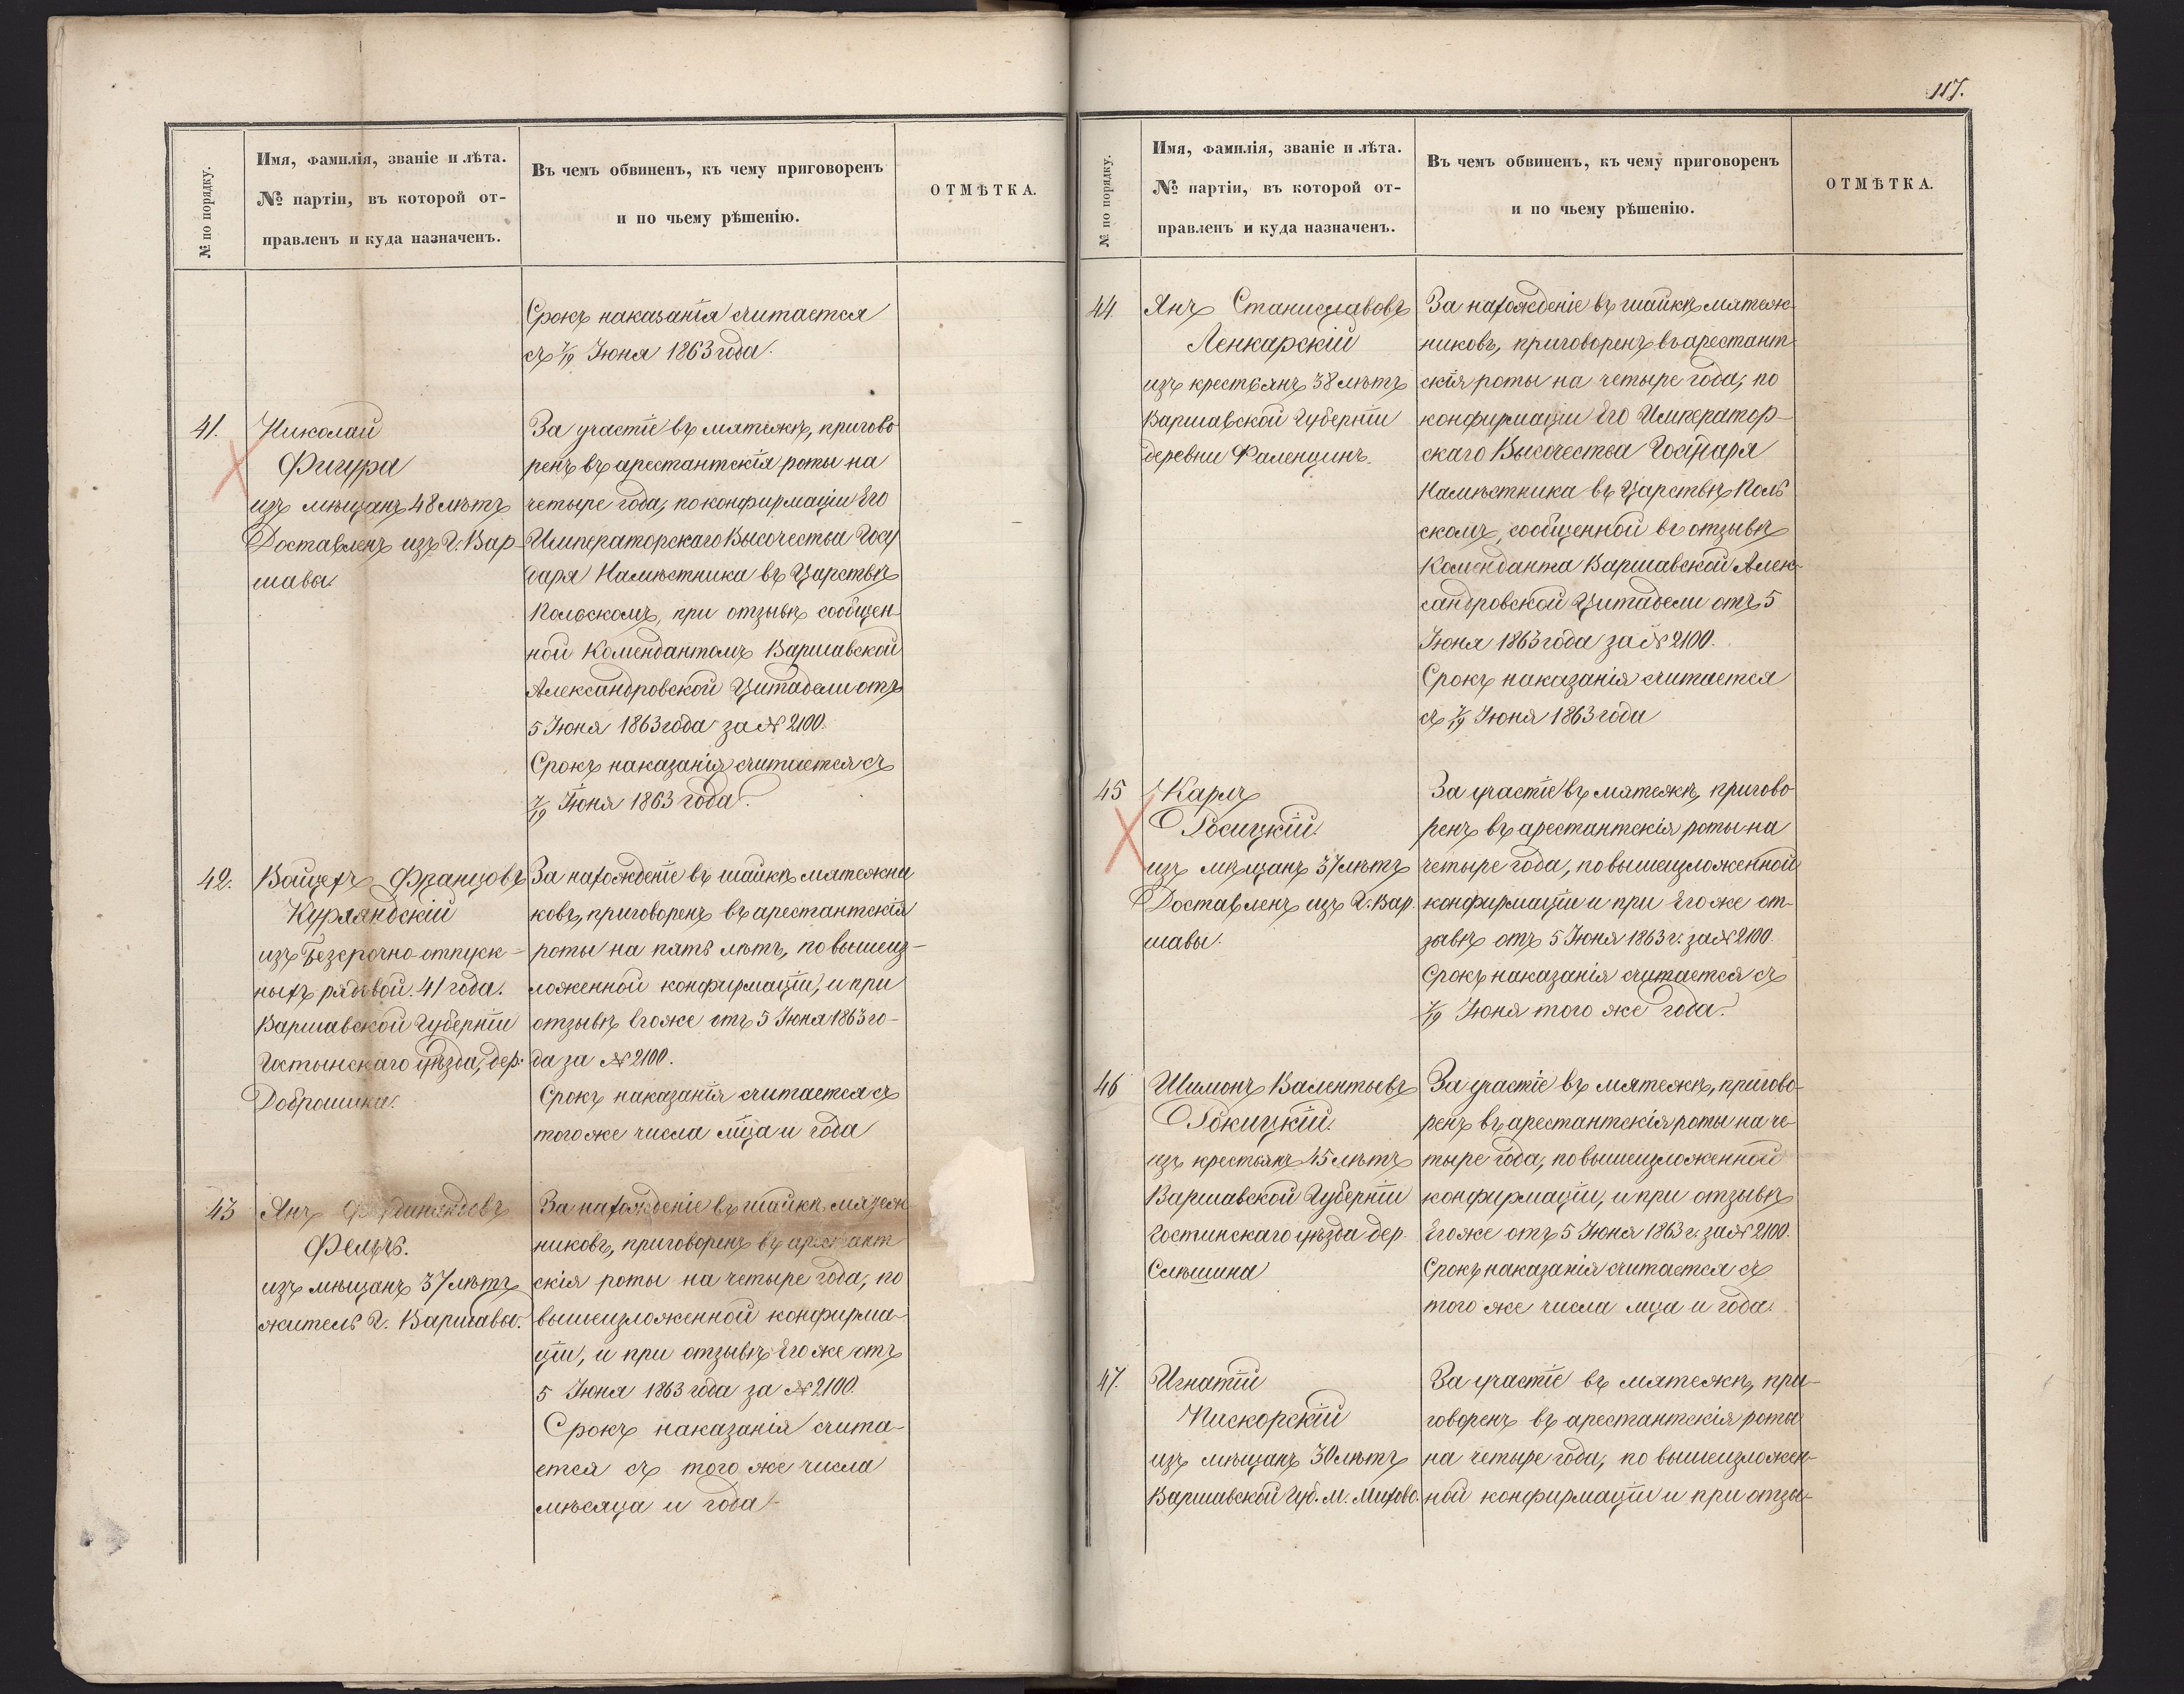 117.
№ по порядку.
Имя, фамилія, званіе и лѣта.
№ партіи, въ которой от-
правленъ и куда назначенъ.
Въ чемъ обвиненъ, къ чему приговоренъ
и по чьему рѣшенію.
ОТМѢТКА.
Срокъ наказанія считается
съ 7/19 Іюня 1863 года.
41.
Николай
Фигура
изъ мѣщанъ 48 лѣтъ
Доставленъ изъ Г. Вар-
шавы.
За участіе въ мятежѣ, пригово
ренъ въ арестантскія роты на
четыре года, по конфирмаціи Его
Императорскаго Высочества Госу
даря Намѣстника въ Царствѣ
Польскомъ, при отзывѣ сообщен-
ной Комендантомъ Варшавской
Александровской Цитадели отъ
5 Іюня 1863 года за № 2100.
Срокъ наказанія считается съ
7/19 Іюня 1863 года.
42.
Войцехъ Францовъ
Курляндскій
изъ Безсрочно-отпуск-
ныхъ рядовой. 41 года.
Варшавской Губерніи
Гостынскаго уѣзда, дер.
Доброшики.
За нахожденіе въ шайкѣ мятежни
ковъ, приговоренъ въ арестантскія
роты на пять лѣтъ, по вышеиз-
ложенной конфирмаціи, и при
отзывѣ Егоже отъ 5 Іюня 1863 го-
да за № 2100.
Срокъ наказанія считается съ
того же числа мѣца и года
43
Янъ
Фельчъ.
изъ мѣщанъ 37 лѣтъ
житель Г. Варшавы.
За нахожденіе въ шайкѣ мятеж
никовъ, приговоренъ въ арестант
скія роты на четыре года, по
вышеизложенной конфирма-
ціи, и при отзывѣ Его же отъ
5 Іюня 1863 года за № 2100.
Срокъ наказанія счита-
ется съ того же числа
мѣсяца и года.
№ по порядку.
Имя, фамилія, званіе и лѣта.
№ партіи, въ которой от-
правленъ и куда назначенъ.
Въ чемъ обвиненъ, къ чему приговоренъ
и по чьему рѣшенію.
ОТМѢТКА.
44
Янъ Станиславовъ
Ленкарскій
изъ крестьянъ 38 лѣтъ
Варшавской Губерніи
деревни Фаленцинъ.
За нахожденіе въ шайкѣ мятеж-
никовъ, приговоренъ въ арестант
скія роты на четыре года, по
конфирмаціи Его Император-
скаго Высочества Государя
Намѣстника въ Царствѣ Поль
скомъ, сообщенной въ отзывѣ
Коменданта Варшавской Алек-
сандровской Цитадели отъ 5
Іюня 1863 года за № 2100.
Срокъ наказанія считается
съ 7/19 Іюня 1863 года
45
Карлъ
Росицкій.
изъ мѣщанъ 37 лѣтъ
Доставленъ изъ Г. Вар-
шавы.
За участіе въ мятежѣ, пригово
ренъ въ арестантскія роты на
четыре года, по вышеизложенной
конфирмаціи и при Его же от-
зывѣ отъ 5 Іюня 1863 г. за № 2100.
Срокъ наказанія считается съ
7/19 Іюня того же года.
46
Шимонъ Валентьевъ
Рокицкій.
изъ крестьянъ 45 лѣтъ
Варшавской Губерніи
Гостинскаго уѣзда дер.
Слѣшина
За участіе въ мятежѣ, пригово-
ренъ въ арестантскія роты на че-
тыре года, по вышеизложенной
конфирмаціи, и при отзывѣ
Егоже отъ 5 Іюня 1863 г. за № 2100.
Срокъ наказанія считается съ
того же числа мца и года.
47.
Игнатій
Пискорскій
изъ мѣщанъ 30 лѣтъ
Варшавской Губ. м. Михово.
За участіе въ мятежѣ, при-
говоренъ въ арестантскія роты
на четыре года, по вышеизложен-
ной конфирмаціи и при отзы-